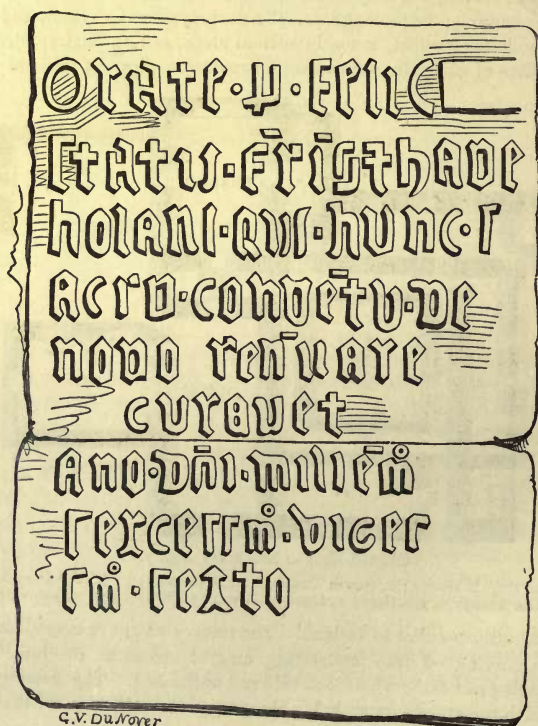 Orate · p · felic
status · fr̄īs thade
holani · qui · hunc · s
acru · convētu · de
novo ren̄uare
curauet
Ano · Dn̄i · millēm̊
sexcessm̊ · viges
sm̊ · sexto
G.V. Du Noyer